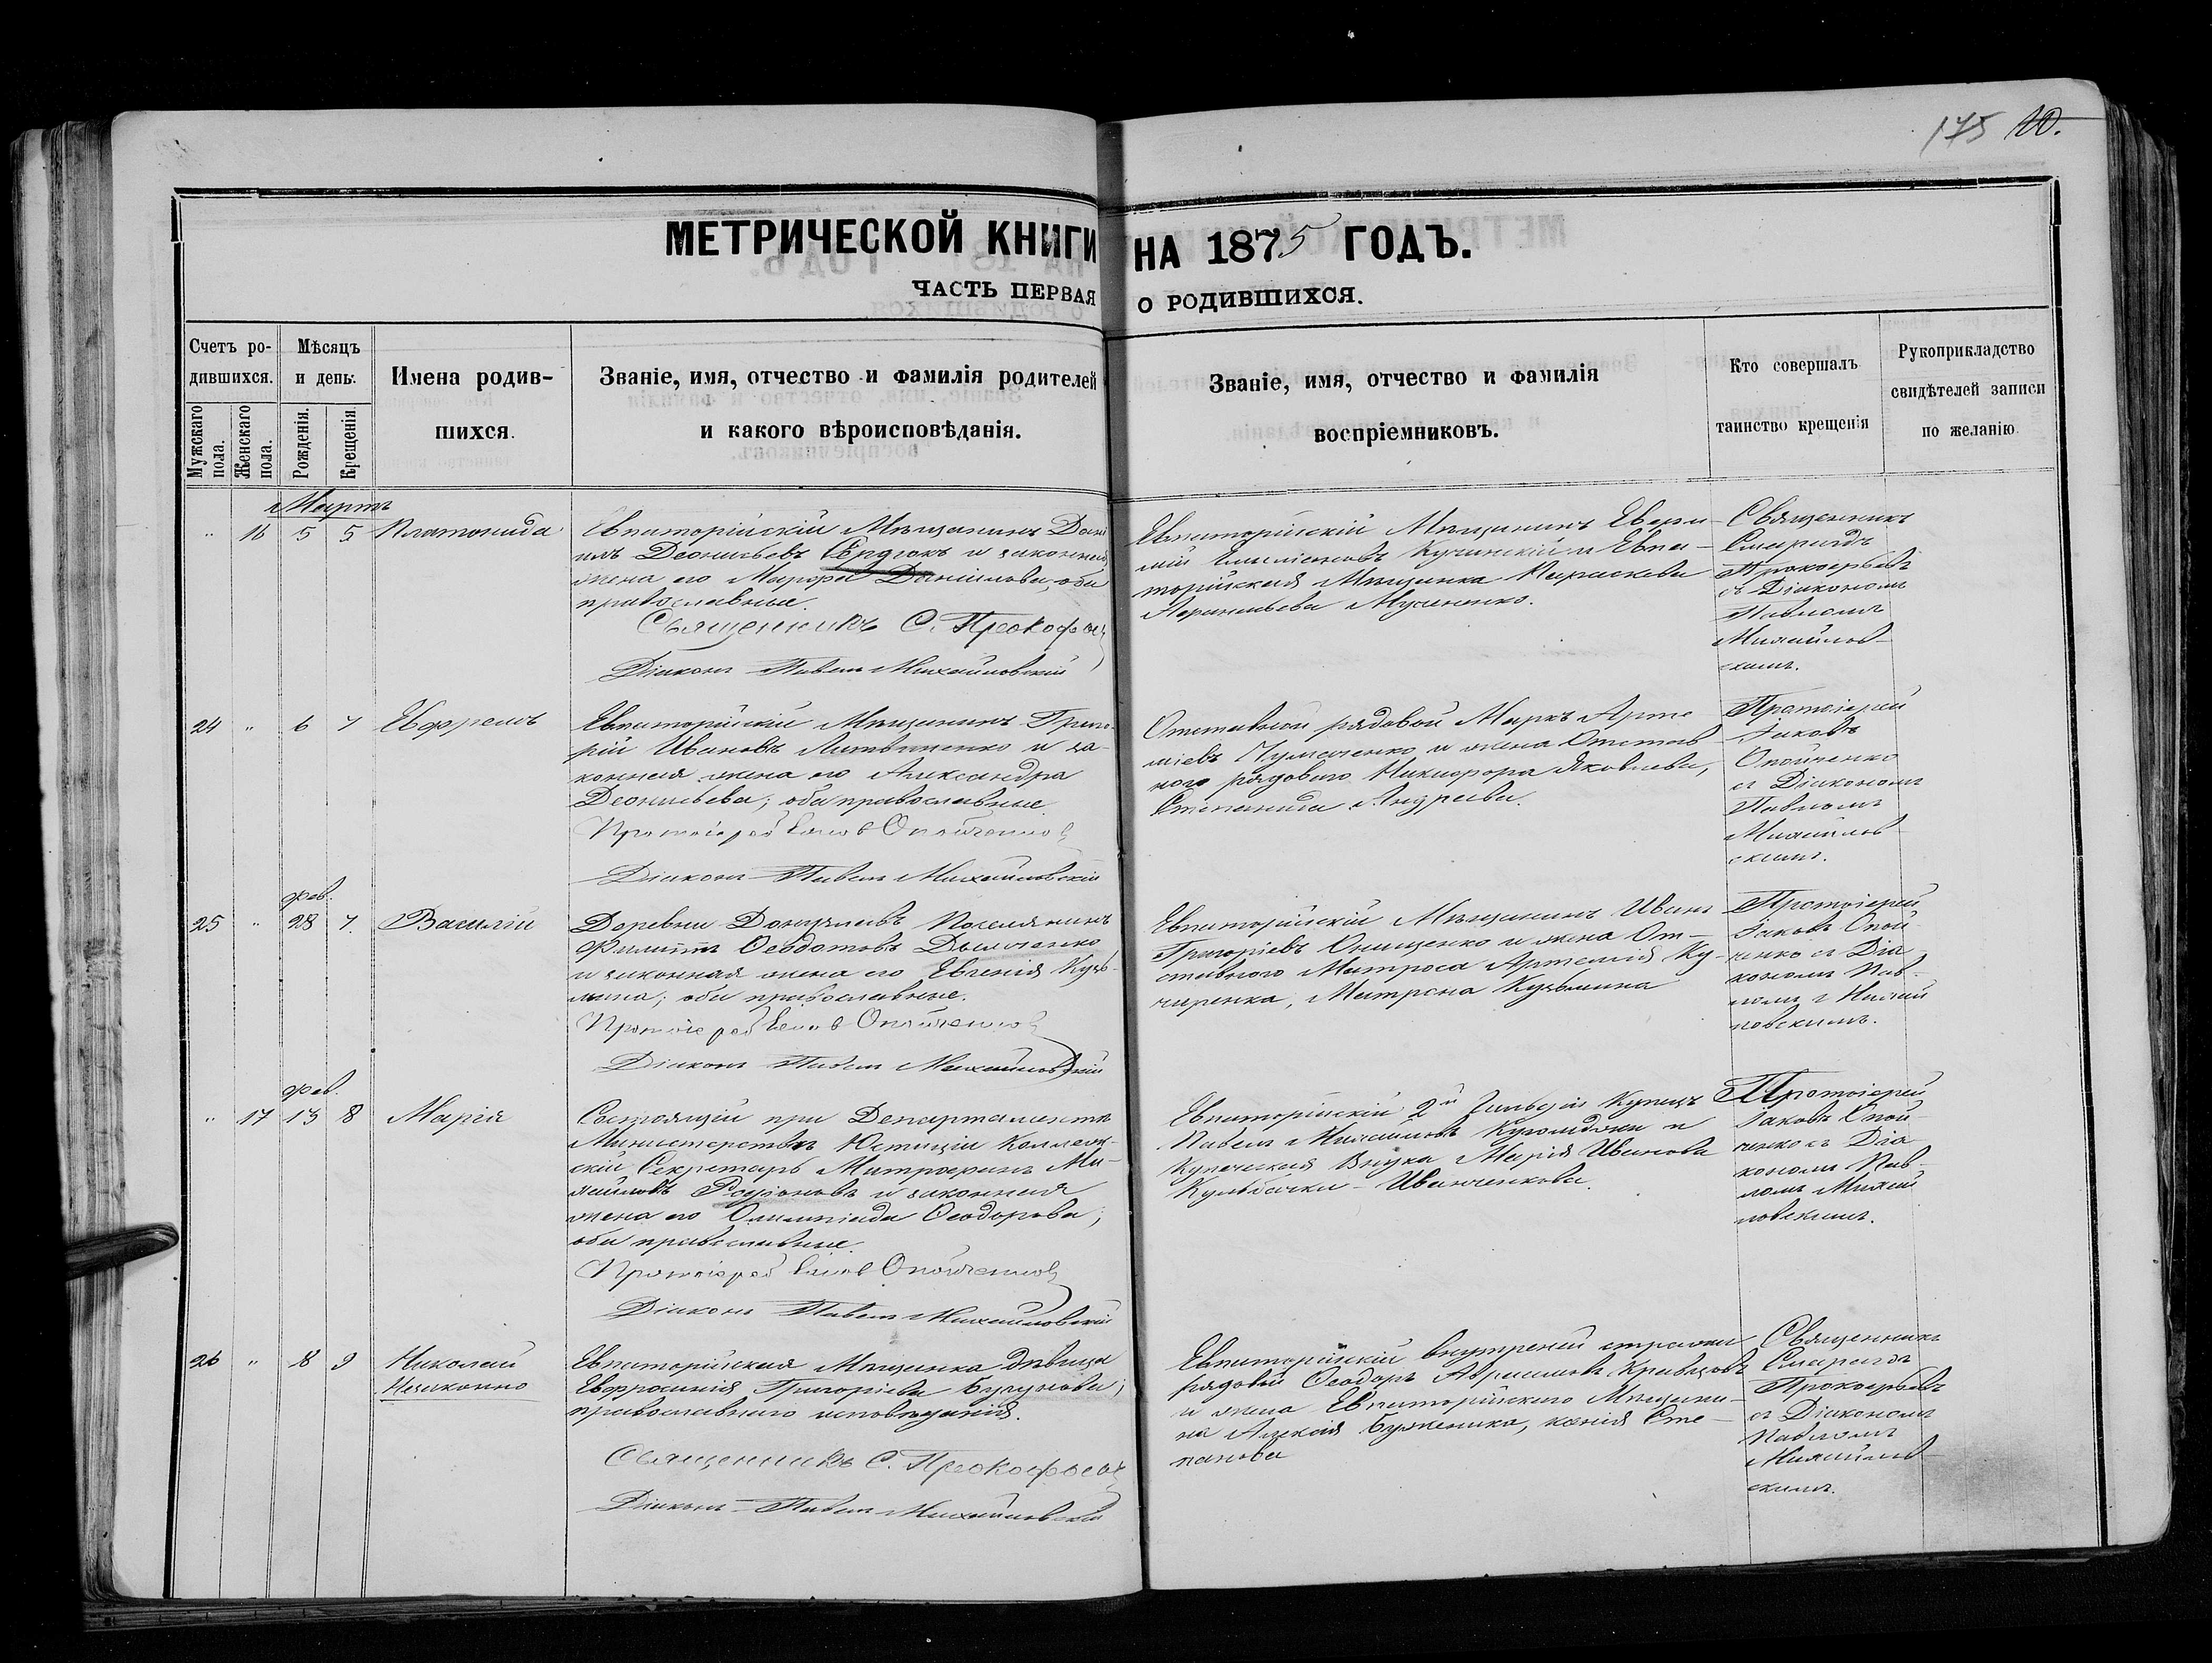 175 10.
МЕТРИЧЕСКОЙ КНИГИ НА 1875 ГОДЪ.
ЧАСТЬ ПЕРВАЯ О РОДИВШИХСЯ.
Счетъ ро-
дившихся.
Мужскаго пола.
Женскаго пола.
Мѣсяцъ
и день.
Рожденія.
Крещенія.
Имена родив-
шихся.
Званіе, имя, отчество и фамилія родителей
и какого вѣроисповѣданія.
Званіе, имя, отчество и фамилія
воспріемниковъ.
Кто совершалъ
таинство крещенія
Рукоприкладство
свидѣтелей записи
по желанію.
Мартъ
" 16 5 5 Платонида
Евпаторійскій Мѣщанинъ Дані
илъ Леонтьевъ Сердюкъ и законная
жена его Марфа Даніилова, оба
православные.
Священникъ С. Прокофьев
Діаконъ Павелъ Михайловскій
Евпаторійскій Мѣщанинъ
Кучинскій и Евпа-
торійская Мѣщанка Параскева
Священникъ
Смарагдъ
Прокофьевъ
съ Діакономъ
Павломъ
Михайлов-
скимъ.
24 " 6 7 Ефремъ
Евпаторійскій Мѣщанинъ Григо-
рій Ивановъ Литвиненко и за-
конная жена его Александра
Леонтьева; оба православные.
Протоіерей Іаков Опойченко
Діаконъ Павелъ Михайловскій
Отставной рядовой Маркъ Арте
міевъ Чумаченко и жена Отстав-
ного рядового Никифора Яковлева,
Степанида Андреева.
Протоіерей
Іаковъ
Опойченко
съ Діакономъ
Павломъ
Михайлов-
скимъ.
фев.
25 " 28 7. Василій
Деревни Донузлавъ Поселянинъ
Филиппъ Ѳеодотовъ Дьяченко
и законная жена его Евгенія Кузь-
мина; оба православные.
Протоіерей Іаков Опойченко
Діаконъ Павелъ Михайловскій
Евпаторійскій Мѣщанинъ Иванъ
Григоріевъ Онищенко и жена От-
ставного Матроса Артемія Ку-
чиренка, Матрона Кузьмина
Протоіерей
Іаковъ Опой-
ченко съ Діа-
кономъ Пав-
ломъ Михай
ловскимъ.
фев.
" 17 13 8 Марія
Состоящій при Департаментѣ
Министерства Юстиціи Коллеж-
скій Секретарь Митрофанъ Ми-
хайловъ Родіоновъ и законная
жена его Олимпіада Ѳеодорова;
оба православные.
Протоіерей Іаков Опойченко
Діаконъ Павелъ Михайловскій
Евпаторійскій 2й Гильдіи Купецъ
Павелъ Михайловъ и
Купеческая Внука Марія Иванова
Кульбачки-Иванченкова.
Протоіерей
Іаковъ Опой-
ченко съ Діа
кономъ Пав-
ломъ Михай
ловскимъ.
26 " 8 9 Николай
Незаконно
Евпаторійская Мѣщанка дѣвица
Евфросинія Григоріева Бугунова;
православного исповѣданія.
Священникъ С. Прокофьев
Діаконъ Павелъ Михайловскій
Евпаторійскій внутреней стражи
рядовой Ѳеодоръ Абрамовъ Кравцовъ
и жена Евпаторійскаго Мѣщани-
на Алексія Буженика, Ксенія Сте-
панова
Священникъ
Смарагдъ
Прокофьевъ
съ Діакономъ
Павломъ
Михайлов-
скимъ.